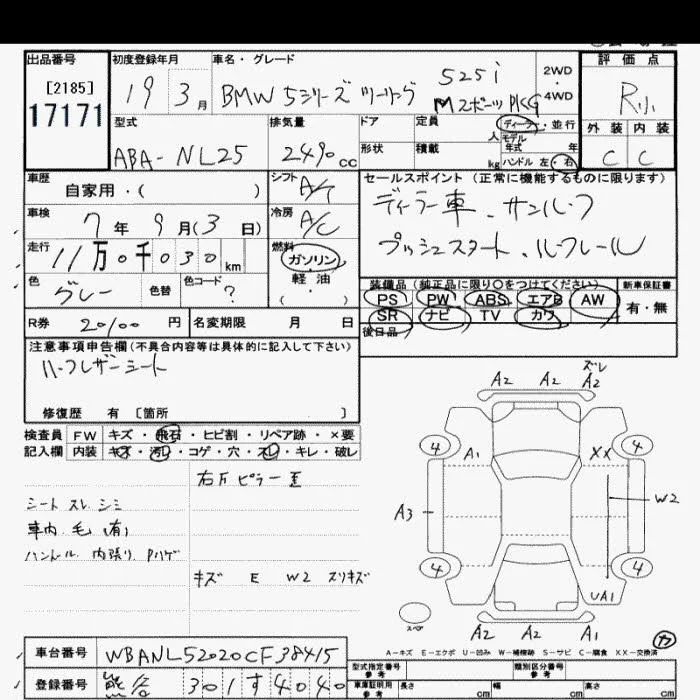 出品番号
[2185]
17171
初度登録年月
19 3月
車名・グレード
BMW 5シリーズ ツーリング 525i
Mスポーツ PKG
2WD
4WD
評価点
R
外装 内装
C C
型式
ABA-NL25
排気量
2490cc
ドア
形状
定員 人
積載 kg
ディーラー・並行
モデル年式 年
ハンドル 左・右
車歴
自家用・( )
シフト
A/T
車検
7年9月(3日)
冷房
A/C
走行
11万0千030km
燃料
ガソリン
軽油
( )
色
グレー
色替
色コード
?
R券
20100円
名変期限 月 日
セールスポイント(正常に機能するものに限ります)
ディーラー車・サンルーフ
プッシュスタート・ルーフレール
装備品(純正品に限り○をつけてください)
PS PW ABS エアB AW
SR ナビ TV カワ
新車保証書
有・無
後日品
注意事項申告欄(不具合内容等は具体的に記入して下さい)
ハーフレザーシート
修復歴 有〔箇所 〕
検査員
記入欄
FW キズ・飛石・ヒビ割・リペア跡・×要
内装 キズ・汚レ・コゲ・穴・スレ・キレ・破レ
シート スレ シミ
車内 毛(有)
ハンドル 内張り Pハゲ
右Fピラー歪
キズ E W2 スリキズ
A2 A2 ズレ A2
4 A1 XX 4
A3 W2
4 4
UA1
スペア
A2 A2 A1
カ
A-キズ E-エクボ U-凹み W-補修跡 S-サビ C-腐食 XX-交換済
車台番号
WBANL52020CF38415
登録番号
熊谷 301す4040
型式指定番号
参考
類別区分番号
参考
車庫証明用
参考
長さ cm
幅 cm
高さ cm